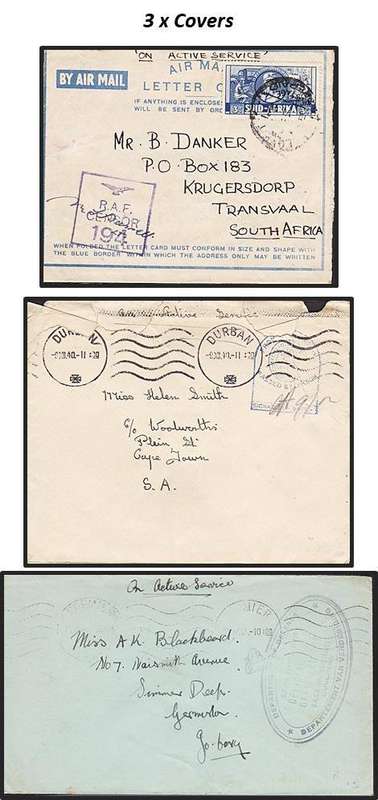 3 x Covers
"ON ACTIVE SERVICE"
AIR MA
BY AIR MAIL
LETTER C
IF ANYTHING IS ENCLOSE
WILL BE SENT BY ORD
SUID-AFRIKA
MR. B. DANKER
P.O. BOX 183
KRUGERSDORP
TRANSVAAL
SOUTH AFRICA
R.A.F.
CENSOR
194
WHEN FOLDED THE LETTER CARD MUST CONFORM IN SIZE AND SHAPE WITH
THE BLUE BORDER WITHIN WHICH THE ADDRESS ONLY MAY BE WRITTEN
on Active Service
DURBAN
DURBAN
Miss Helen Smith
c/o Woolworths
Plein St
Cape Town
S.A.
On Active Service
Miss A K Blackbeard.
No 7. Naismith Avenue.
Simmer Deep
Germiston